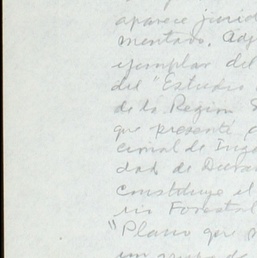 aparece
mentado. Adj
ejemplar del
del "Estudio
de la Región
que presenté
cional de Inge
dad de Duran
constituye el
rio Forestal
"Plano que
un grupo de